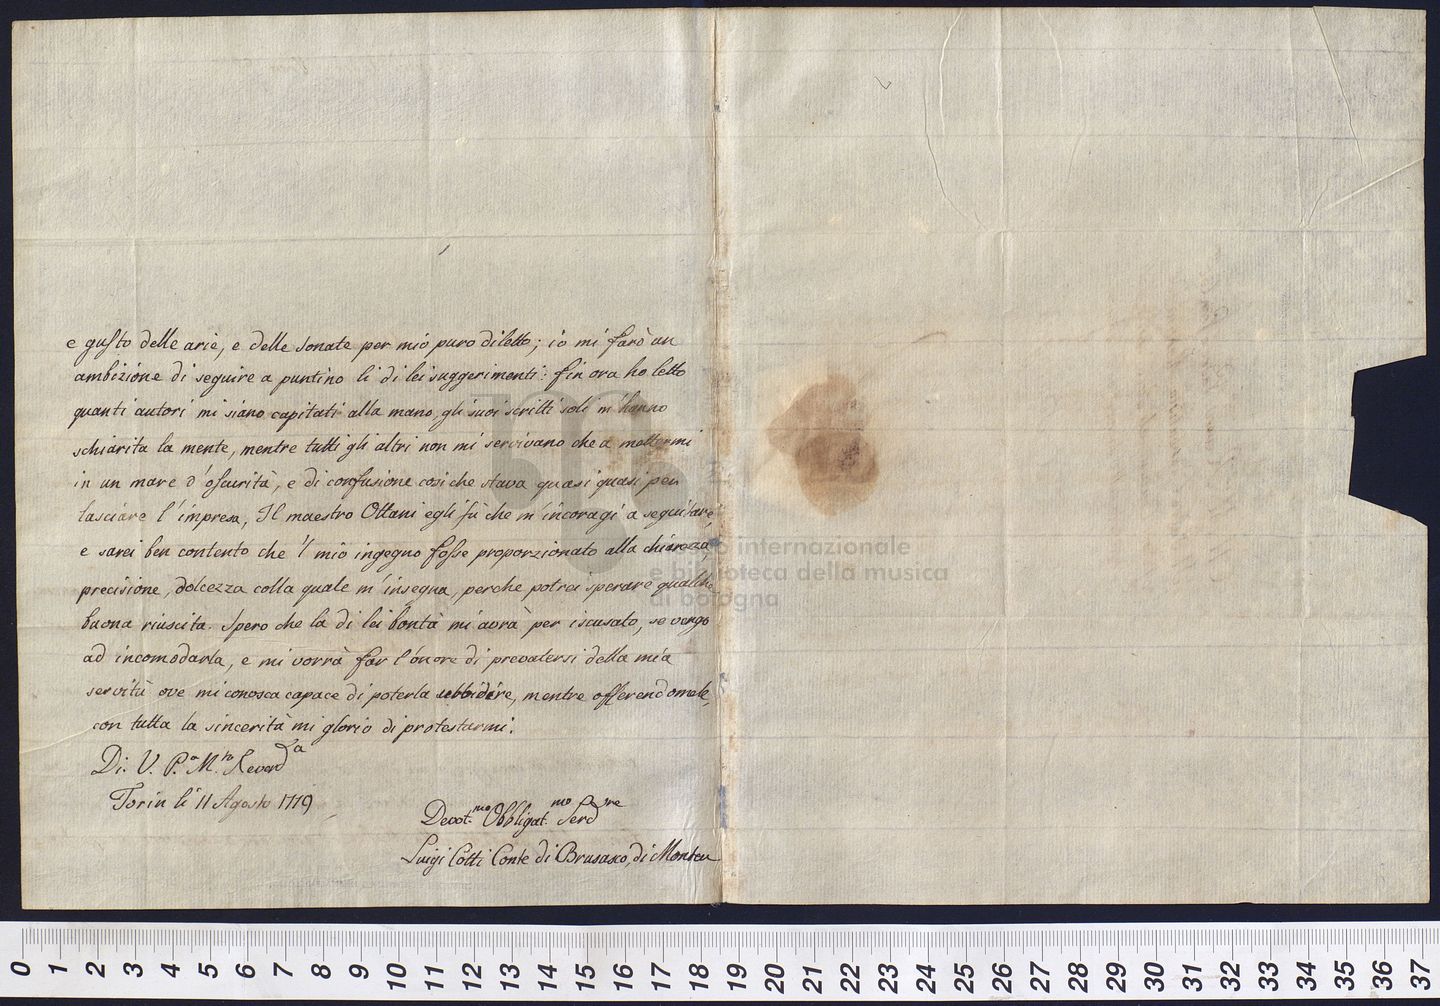 e gusto delle arie, e delle sonate per mio puro diletto; io mi farò un
ambizione di seguire a puntino li di lei suggerimenti: fin ora ho letto
quanti autori mi siano capitati alla mano, gli suoi scritti soli m'hanno
schiarita la mente, mentre tutti gli altri non mi servivano che a mettermi
in un mare d'oscurità, e di confusione cosi che stava quasi quasi per
lasciare l'impresa, Il maestro Ottani egli fù che m'incoragi a seguitare,
e sarei ben contento che 'l mio ingegno fosse proporzionato alla chiarezza,
precisione, dolcezza colla quale m'insegna, perche potrei sperare qualche
buona riuscita. Spero che la di lei bontà mi avrà per iscusato, se vengo
ad incomodarla, e mi vorrà far l'onore di prevalersi della mia
servitù ove mi conosca capace di poterla ubbidire, mentre offerendomele,
con tutta la sincerità mi glorio di protestarmi.
Di. V. P.a M.to Reverd.a
Torin li 11 Agosto 1779
Devot.mo Obbligat.mo Serd.re
Luigi Cotti Conte di Brusasco, di Monteu
museo internazionale
e biblioteca della musica
di bologna
0 1 2 3 4 5 6 7 8 9 10 11 12 13 14 15 16 17 18 19 20 21 22 23 24 25 26 27 28 29 30 31 32 33 34 35 36 37